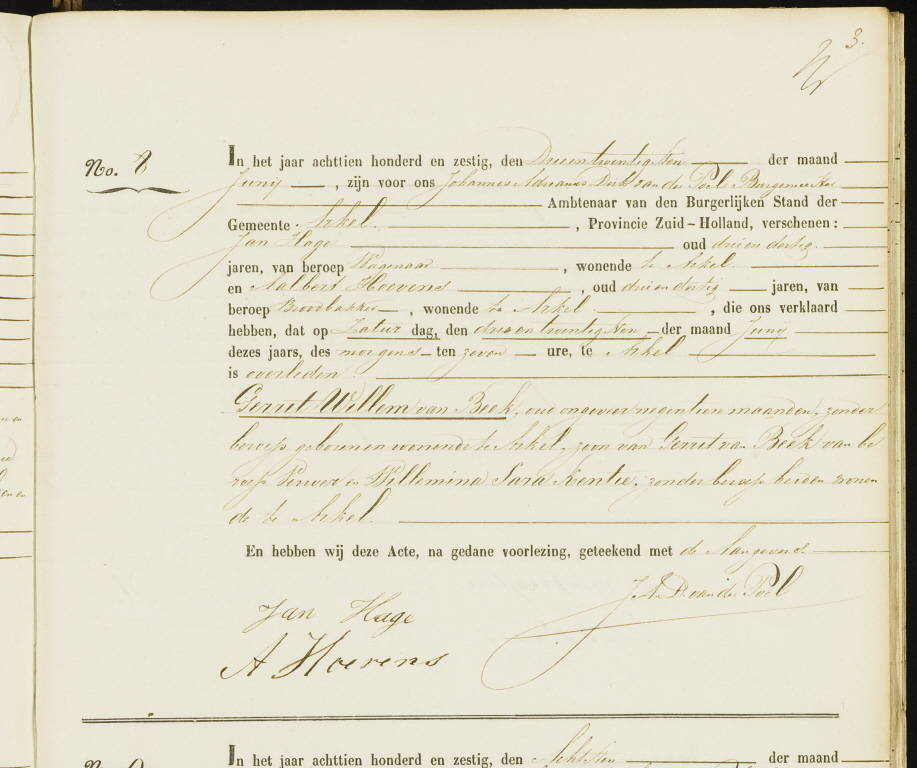 3.
No. 8
In het jaar achttien honderd en zestig, den Drieentwintigsten der maand
Junij, zijn voor ons Johannis Adrianus Dirk van der Poel Burgemeester
Ambtenaar van den Burgerlijken Stand der
Gemeente Arkel, Provincie Zuid-Holland, verschenen:
Jan Hage oud drieendertig
jaren, van beroep Wagenaar, wonende te Arkel
en Aalbert Hoevens, oud drieendertig jaren, van
beroep Broodbakker, wonende te Arkel, die ons verklaard
hebben, dat op Zatur dag, den drieentwintigsten der maand Junij
dezes jaars, des morgens ten zeven ure, te Arkel
is overleden:
Gerrit Willem van Beek, oud ongeveer negentien maanden, zonder
beroep geboren en wonende te Arkel, zoon van Gerret van Beek van be
roep en Willemina Sara Kentie, zonder beroep beiden wonen
de te Arkel.
En hebben wij deze Acte, na gedane voorlezing, geteekend met de Aangevers
J A D van der Poel
Jan Hage
A Hoevens
No. 9
In het jaar achttien honderd en zestig, den Achtsten der maand